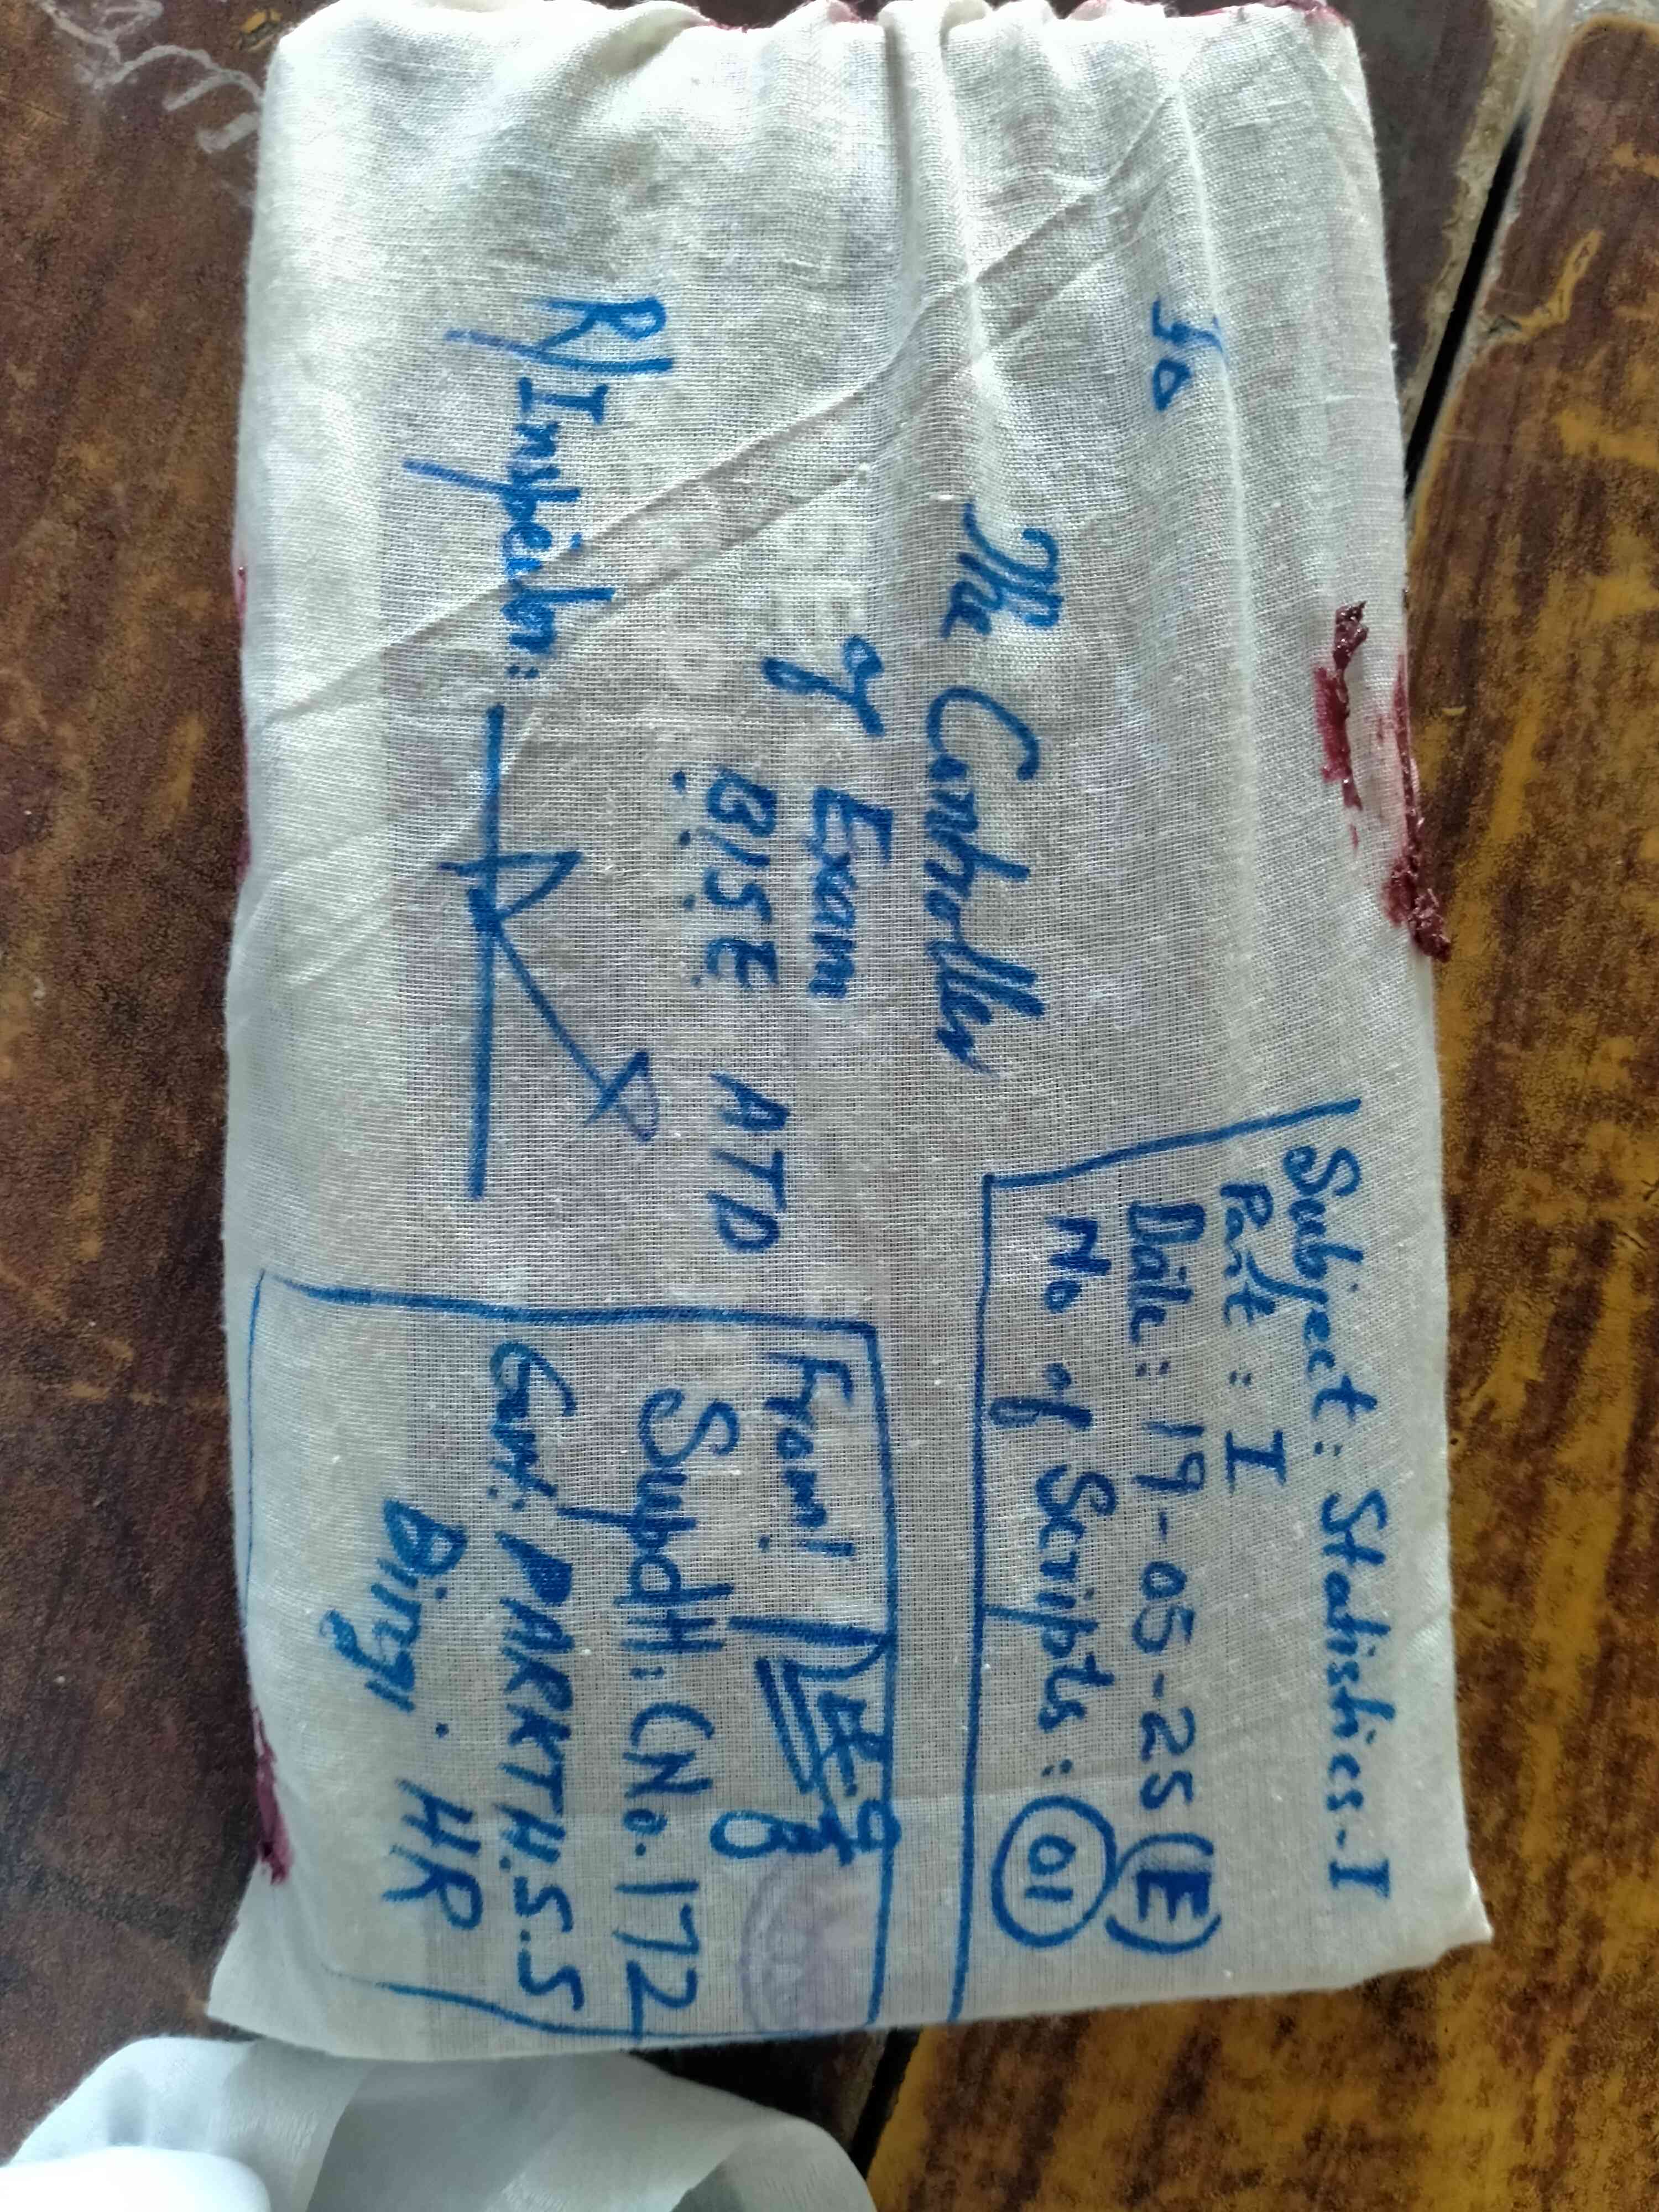 Subject: Statistics-I
Part: I
Date: 19-05-25 (E)
No of Scripts: 01
To
The Controller
of Exam
B.I.S.E. ATD
R/Inspector:
From:
Supdtt: (No. 172
Govt: PARKTH.S.S
Dingi. HR